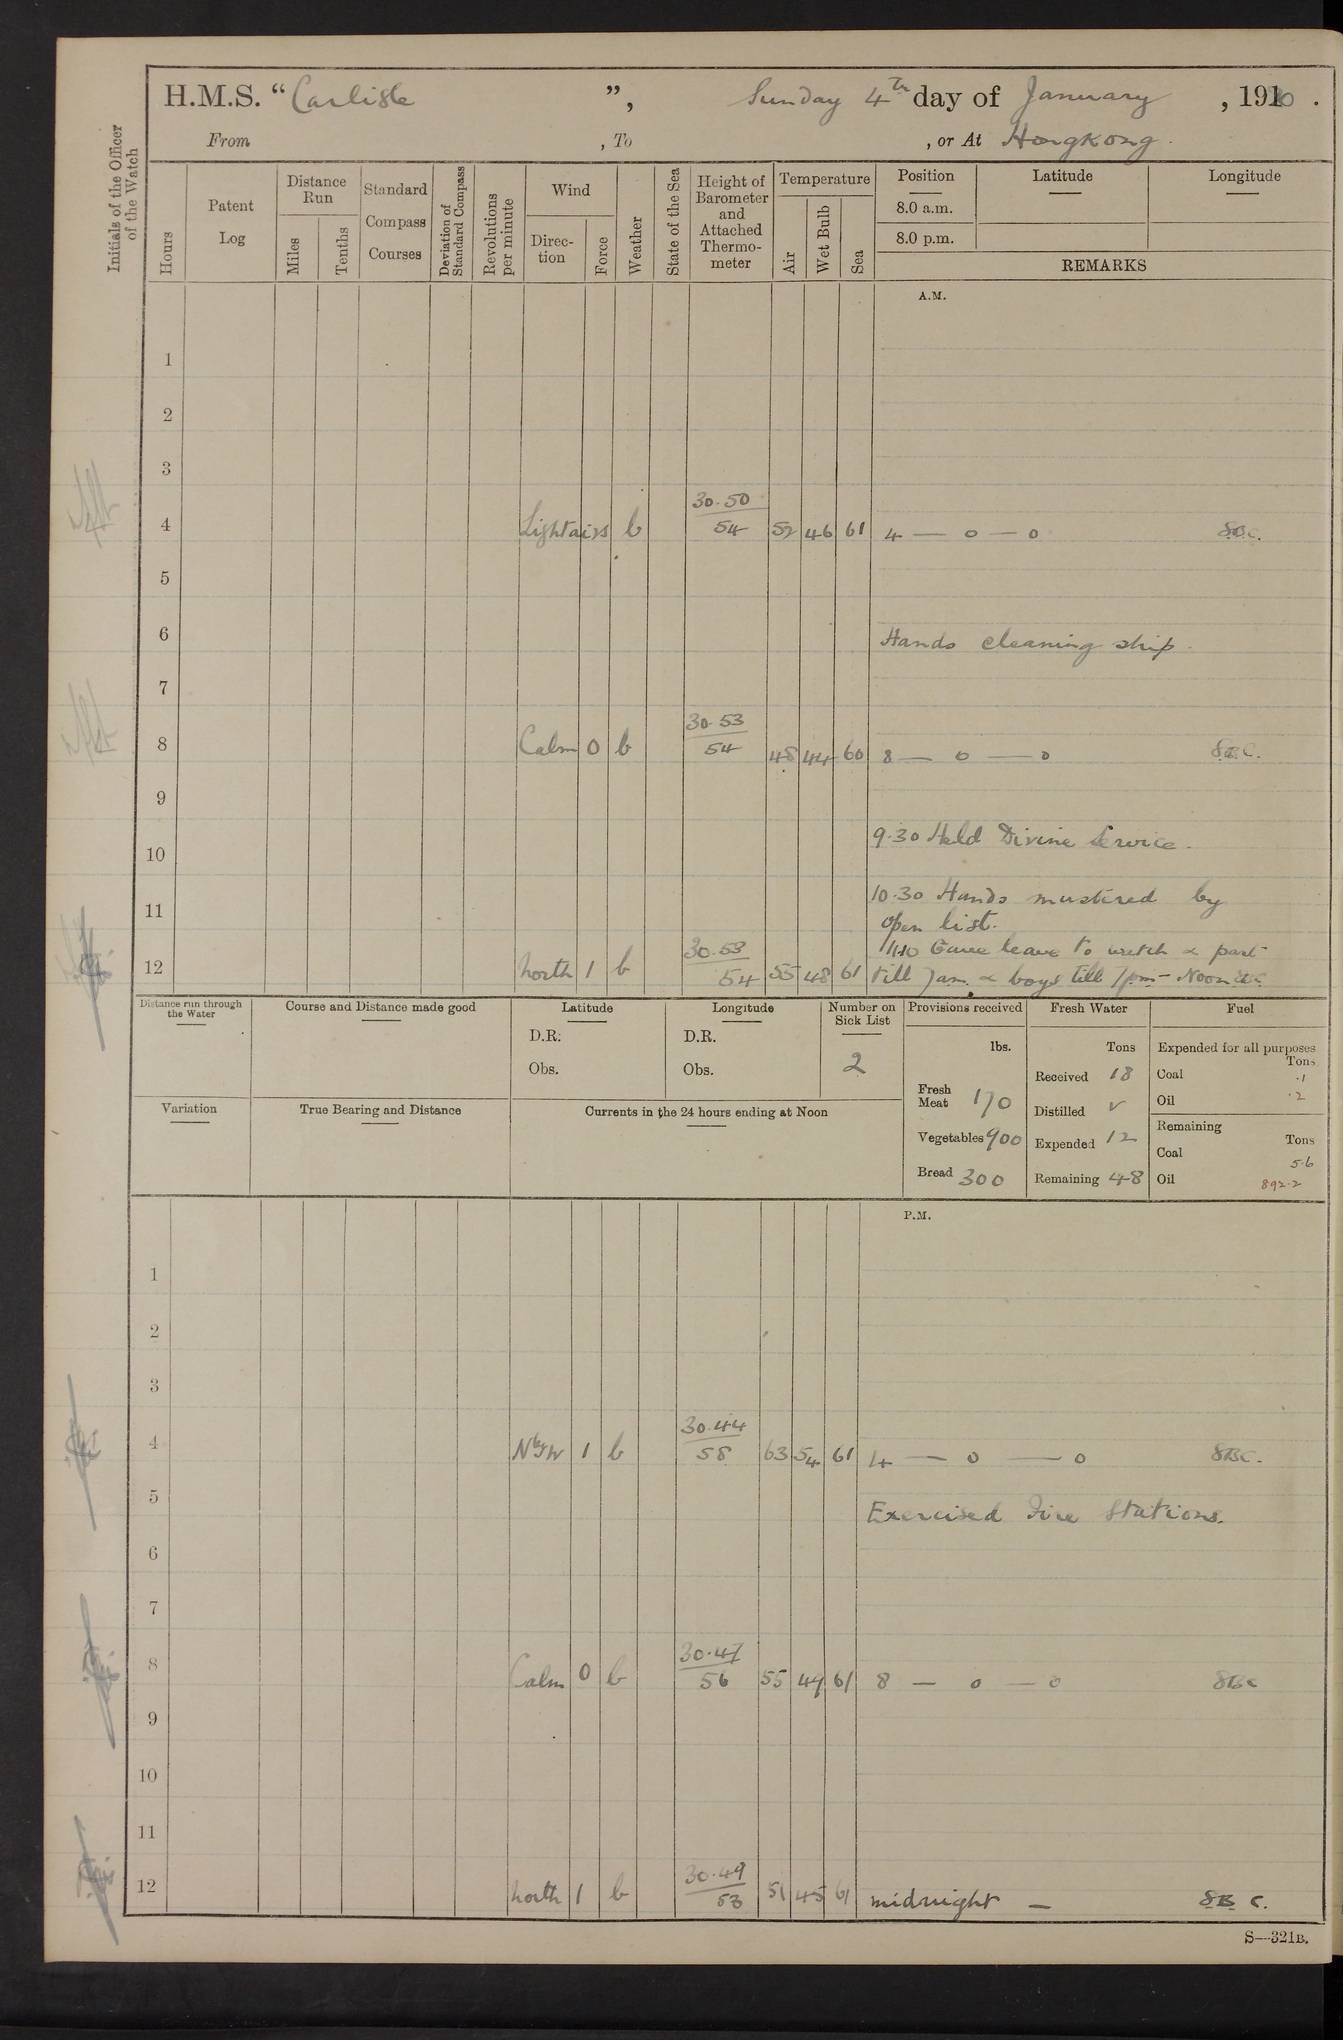 H.M.S. "Carlisle", Sunday 4th day of January, 1910.
From , To , or At Hongkong.
Initials of the Officer of the Watch
Hours
Patent Log
Distance Run
Miles
Tenths
Standard Compass Courses
Deviation of Standard Compass
Revolutions per minute
Wind
Direction
Force
Weather
State of the Sea
Height of Barometer and Attached Thermometer
Temperature
Air
Wet Bulb
Sea
Position
Latitude
Longitude
8.0 a.m.
8.0 p.m.
REMARKS
A.M.
1
2
3
4 Light airs b 30.50 54 52 46 61 4 — o — o
5
6 Hands cleaning ship.
7
8 Calm 0 b 30.53 54 48 44 60 8 — o — o
9
9.30 Held Divine Service.
10
10.30 Hands mustered by
11
open list.
11.10 Gave leave to watch & part
12 North 1 b 30.53 54 55 48 61 till 7am. & boys till 7pm — Noon
Distance run through the Water
Course and Distance made good
Latitude
D.R.
Obs.
Longitude
D.R.
Obs.
Number on Sick List
2
Provisions received
lbs.
Fresh Meat 170
Vegetables 900
Bread 300
Fresh Water
Tons
Received 18
Distilled ✓
Expended 12
Remaining 48
Fuel
Expended for all purposes
Tons
Coal .1
Oil .2
Remaining
Tons
Coal 5.6
Oil 892.2
Variation
True Bearing and Distance
Currents in the 24 hours ending at Noon
P.M.
1
2
3
4 NbyW 1 b 30.44 58 63 54 61 4 — o — o SBC.
5 Exercised Fire Stations.
6
7
8 Calm 0 b 30.47 56 55 49 61 8 — o — o SBC
9
10
11
12 North 1 b 30.49 53 51 45 61 midnight — SB C.
S—321B.